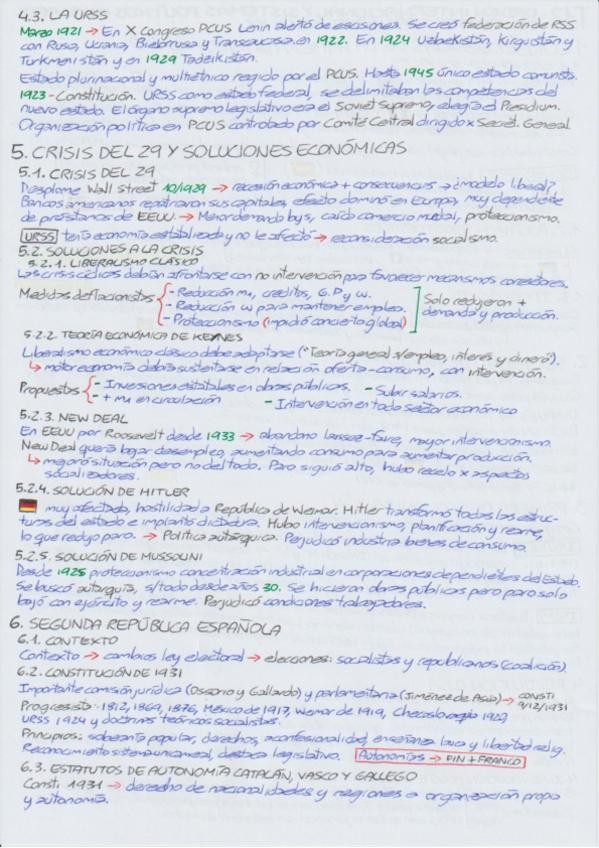 4.3. LA URSS
Marzo 1921 → En X Congreso PCUS Lenin alertó de escisiones. Se creó federación de RSS
con Rusa, Ucrania, Bielorrusa y Transcaucasa en 1922. En 1924 Uzbekistán, Kirguistán y
Turkmenistán y en 1929 Tadzikistán.
Estado plurinacional y multiétnico regido por el PCUS. Hasta 1945 único estado comunista.
1923 - Constitución. URSS como estado federal, se delimitaban las competencias del
nuevo estado. El órgano supremo legislativo era el Soviet Supremo, elegía el Presidium.
Organización política en PCUS controlado por Comité Central dirigido x Secret. General
5. CRISIS DEL 29 Y SOLUCIONES ECONÓMICAS
5.1. CRISIS DEL 29
Desplome Wall street 10/1929 → recesión económica + consecuencias → ¿modelo liberal?
Bancos americanos repatriaron sus capitales, efecto dominó en Europa, muy dependiente
de préstamos de EEUU. → Menor demanda bys, caída comercio mundial, proteccionismo.
URSS tenía economía estabilizada y no le afectó → reconsideración socialismo.
5.2. SOLUCIONES A LA CRISIS
5.2.1. LIBERALISMO CLÁSICO
Las crisis cíclicas debían afrontarse con no intervención para favorecer mecanismos correctores.
Medidas deflacionistas
- Reducción mu, créditos, G.P y w.
- Reducción w para mantener empleo.
- Proteccionismo (impidió concierto global)
Solo redujeron +
demanda y producción.
5.2.2. TEORÍA ECONÓMICA DE KEYNES
Liberalismo económico clásico debe adaptarse ("Teoría general s/empleo, interés y dinero").
↳ motor economía debía sustentarse en relación oferta-consumo, con intervención.
Propuestas
- Inversiones estatales en obras públicas. - Subir salarios.
- + mu en circulación - Intervención en todo sector económico
5.2.3. NEW DEAL
En EEUU por Roosevelt desde 1933 → abandono laissez-faire, mayor intervencionismo.
New Deal quería bajar desempleo, aumentando consumo para aumentar producción.
↳ mejoró situación pero no del todo. Paro siguió alto, hubo recelo x aspectos
socializadores.
5.2.4. SOLUCIÓN DE HITLER
muy afectada, hostilidad a República de Weimar. Hitler transformó todas las estruc-
turas del estado e implantó dictadura. Hubo intervencionismo, planificación y rearme,
lo que redujo paro. → Política autárquica. Perjudicó industria bienes de consumo.
5.2.5. SOLUCIÓN DE MUSSOLINI
Desde 1925 proteccionismo concentración industrial en corporaciones dependientes del Estado.
Se buscó autarquía, s/todo desde años 30. Se hicieron obras públicas pero paro solo
bajó con ejército y rearme. Perjudicó condiciones trabajadores.
6. SEGUNDA REPÚBLICA ESPAÑOLA
6.1. CONTEXTO
Contexto → cambios ley electoral → elecciones: socialistas y republicanos (coalición).
6.2. CONSTITUCIÓN DE 1931
Importante comisión jurídica (Ossorio y Gallardo) y parlamentaria (Jiménez de Asúa) → CONSTI
9/12/1931
Progresista: 1812, 1869, 1876, México de 1917, Weimar de 1919, Checoslovaquia 1920,
URSS 1924 y doctrinas teóricos socialistas.
Principios: soberanía popular, derechos, aconfesionalidad, enseñanza laica y libertad relig.
Reconocimiento sistema unicameral, destaca legislativo. Autonomías → FIN + FRANCO
6.3. ESTATUTOS DE AUTONOMÍA CATALÁN, VASCO Y GALLEGO
Consti 1931 → derecho de nacionalidades y regiones a organización propia
y autonomía.